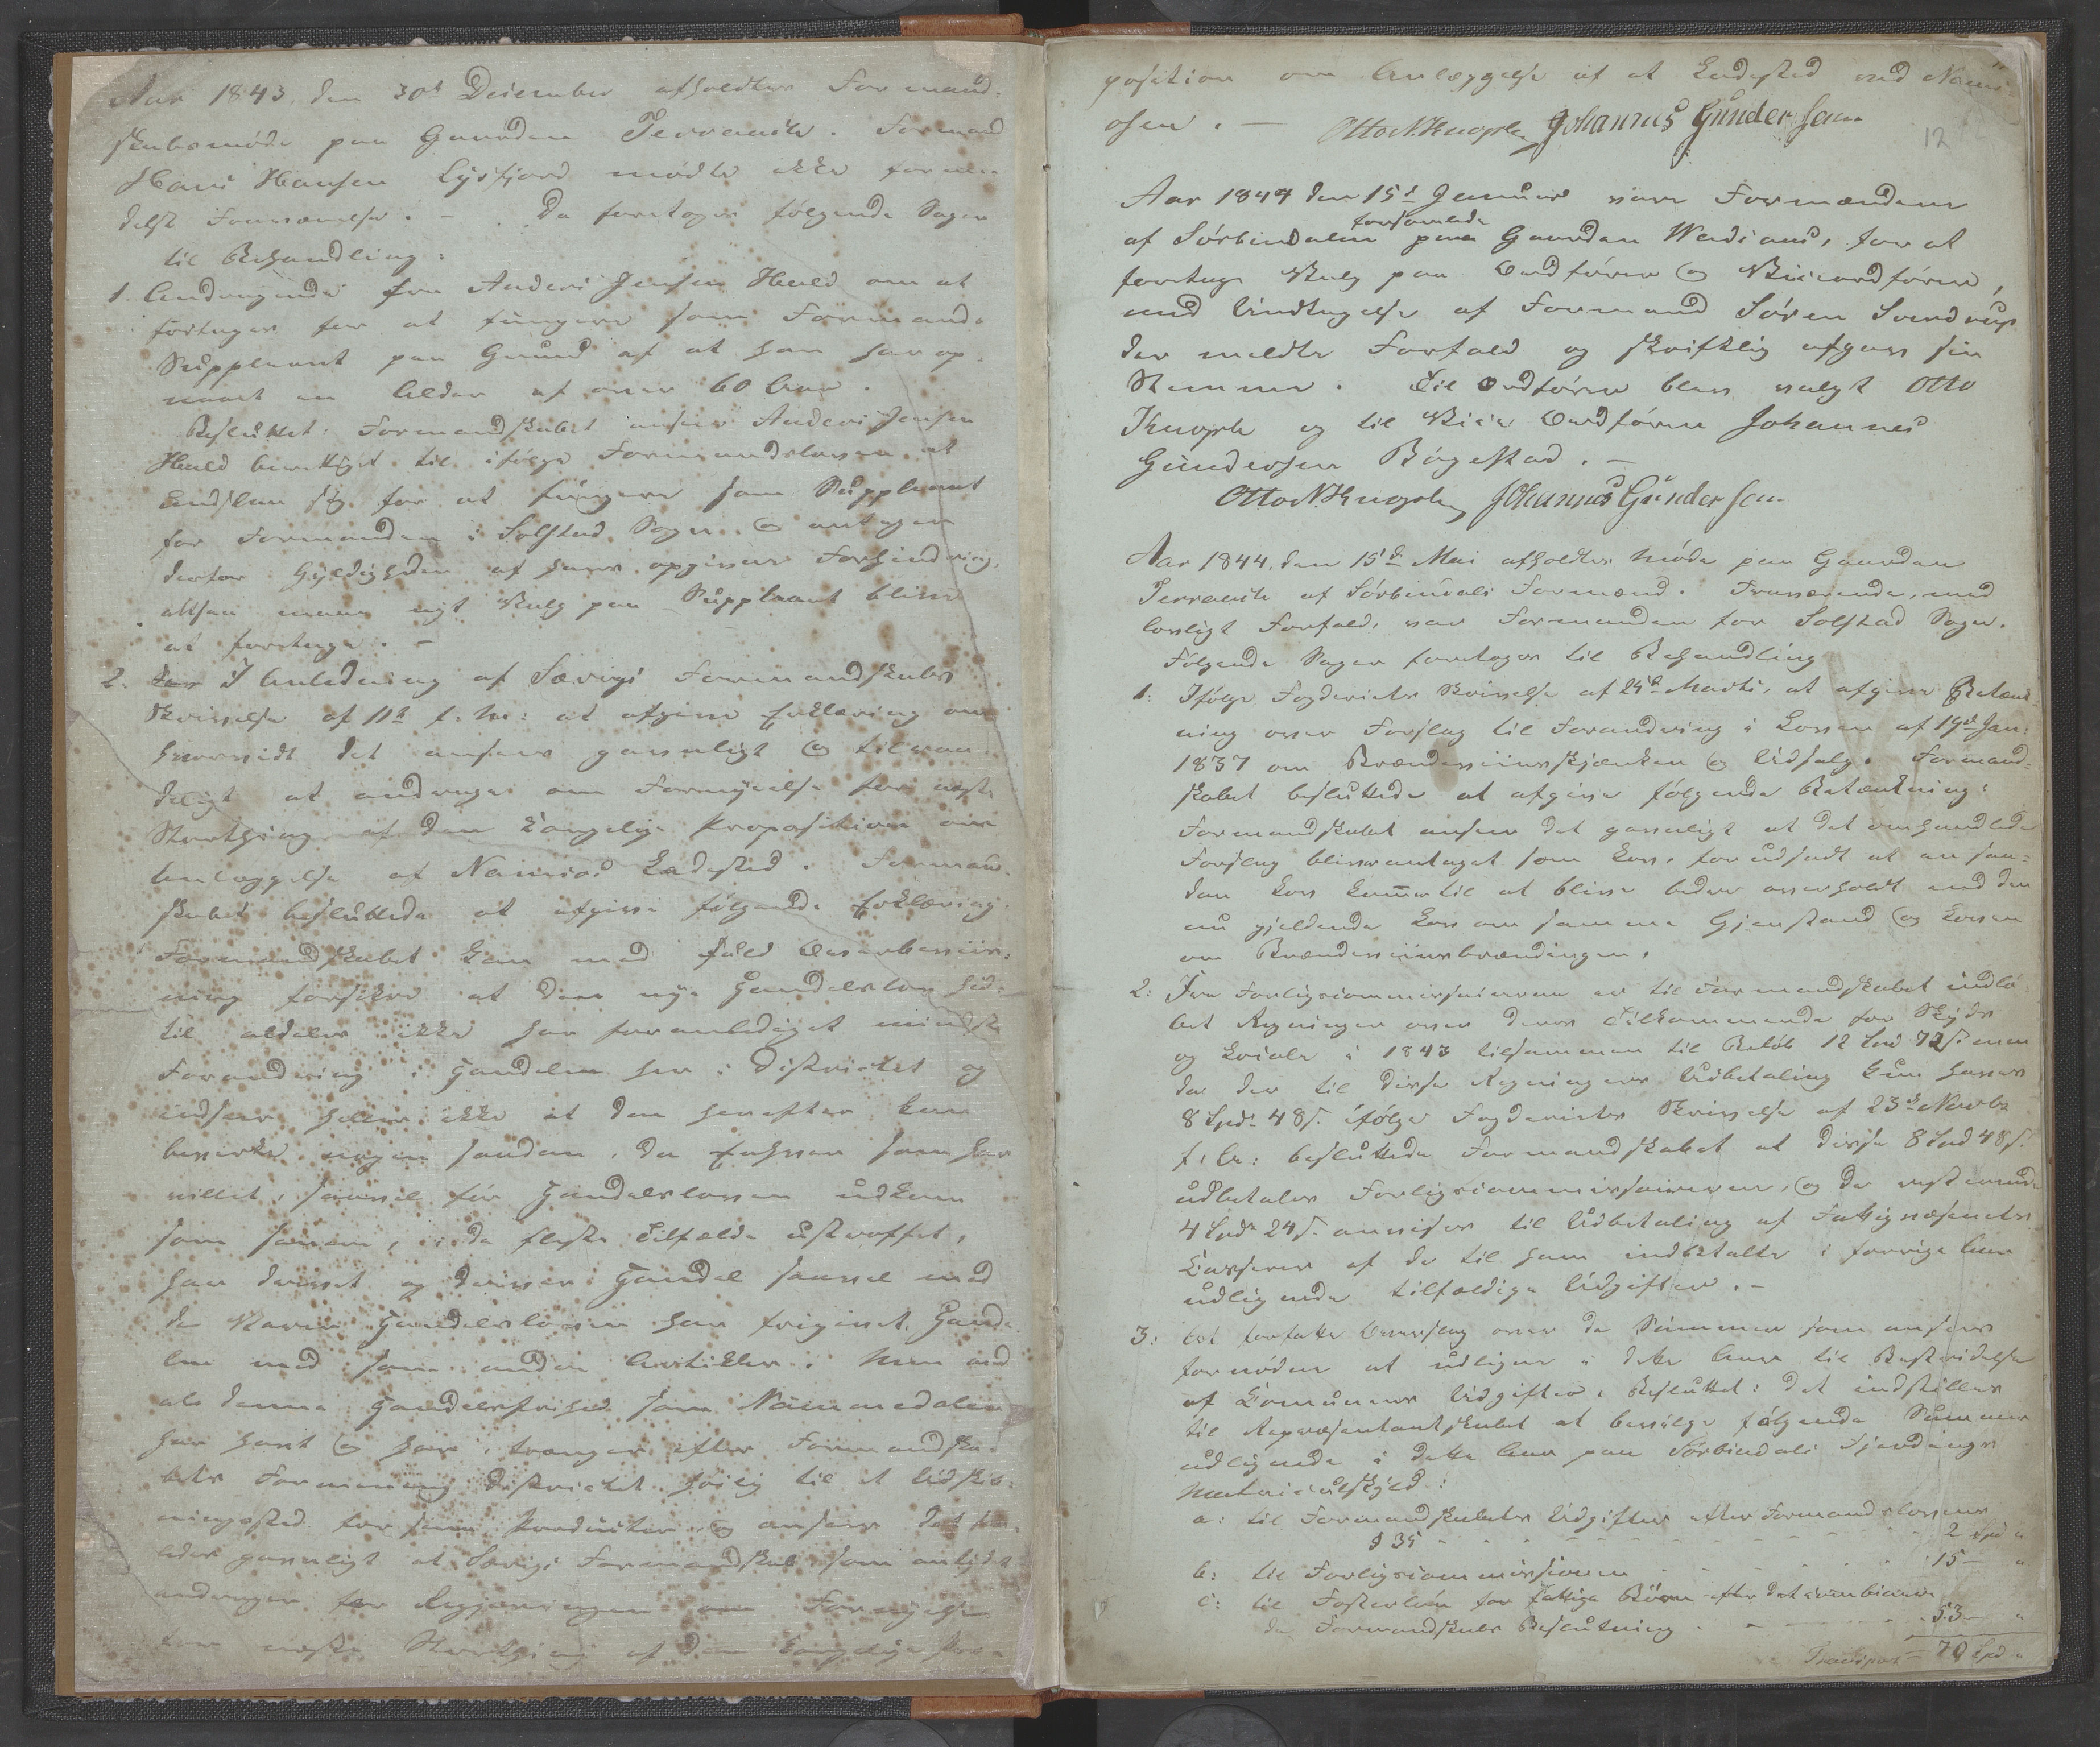 Aar 1843, den 30te December afholdtes Formand-
skabsmøde paa Gaarden Terraak. Formand
Hans Hansen Lysfjord mødte ikke formo-
delst Fraværelse. – Da foretoges følgende Sager
til Behandling:
1. Andragende fra Anders Jensen Heald om at
fritages for at fungere som Formands
Suppleant paa Grund af at han har op-
naaet en Alder af over 60 Aar.
Besluttet: Formandskabet anser Anders Jensen
Heald berettiget til ifølge Formandsloven at
undslaa sig for at fungere som Suppleant
for Formanden i Solstad Sogn, og antager
derfor Gyldigheden af hans opgivne Forhindring,
altsaa maa nyt Valg paa Suppleant blive
at foretage. –
2. I Anledning af Særvigs Formandskabs
Skrivelse af 11te f. M: at afgive Erklæring om
hvorvidt det ansees gavnligt og tilraa-
deligt at andrage om Fornyelse for næste
Storthing af den kongelige Proposition om
Anlæggelse af Namsos Ladested. Formand-
skabet besluttede at afgive følgende Erklæring.
Formandskabet kan med fuld Overbeviis-
ning forsikre at den nye Handelslov hid-
til aldeles ikke har foranlediget mindste
Forandring i Handelen her i Districtet og
indseer heller ikke at den herefter kan
bevirke nogen saadan, da Enhver som har
villet, saavel før Handelsloven udkom
som senere, i de fleste Tilfælde ustraffet,
har drevet og driver Handel saavel med
de Varer Handelsloven har frigivet Hand-
len med som anden Artikler. Men end
als denne Handelsfrihed som Nammedalen
har havt og har, trænger efter Formandska-
bets Formening Districtet høilig til et Udskib-
ningssted for sine Producter og ansees det saa-
ledes gavnligt at Særvigs Formandskab som antydet
andrager for Regjeringen om Fornyelse
for næste Storthing af den kongelige Pro-
position om Anlæggelse af et Ladested ved Nams-
osen. – Otto N. Knoph Johannes Gundersen
12
Aar 1844 den 15de Januar vare Formændene
af Sørbindalen forsamlede paa Gaarden Wadsaas, for at
foretage Valg paa Ordfører og Viceordfører,
med Undtagelse af Formand Søren Sverdrup
der meldte Forfald og skriftlig afgav sin
Stemme. Til Ordfører blev valgt Otto
Knoph og til Vice Ordfører Johannes
Gundersen Bøgestad. –
Otto N. Knoph Johannes Gundersen
Aar 1844, den 15de Mai afholdtes Møde paa Gaarden
Terraak af Sørbindals Formænd. Fraværende, med
lovligt Forfald, var Formanden for Solstad Sogn.
Følgende Sager foretoges til Behandling
1: Ifølge Fogderiets Skrivelse af 25de Marts, at afgive Betænk-
ning over Forslag til Forandring i Loven af 19de Jan:
1837 om Brændeviinsskjænken og Udsalg. Formand-
skabet besluttede at afgive følgende Betænkning:
Formandskabet anser det gavnligt at det omhandlede
Forslag bliver antaget som Lov, forudsadt at en saa-
dan Lov kommer til at blive bedre overholdt end den
nu gjeldende Lov om samme Gjenstand og Loven
om Brændeviinsbrændingen.
2: Fra Forligscommissairerne er til Formandskabet indlø-
bet Regninger over deres Tilkommende for Skyds
og Qviale i 1843 tilsammen til Beløb 12 Spd 72 s. men
da der til disse Regningers Udbetaling kun haves
8 Spd. 48 s. ifølge Fogderiets Skrivelse af 23de Novbr
f. A: besluttede Formandskabet at disse 8 Spd 48 s.
udbetales Forligscommissairerne, og de resterende
4 Spd. 24 s. anvises til Udbetaling af Fattigvæsenets
Casserer af de til ham indbetalte i forrige Aar
udlignede tilfældige Udgifter. –
3: Bel forfatte Overslag over de Summer som ansees
fornødne at udligne i dette Aar til Bestridelse
af Communens Udgifter. Besluttet: det indstilles
til Repræsentantskabet at bevilge følgende Summer
udlignede i dette Aar paa Sørbindals Fjerdings
Matriculskyld:
a: til Formandskabets Udgifter efter Formandslovens
§ 35 - - - - - - - - 2 Spd „
b: til Forligscommissionen - - - - 15 – „
c: til Fosterløn for fattige Børn efter det combinere-
de Formandskabs Beslutning - - - - 53 – „
Transport – 70 Spd „